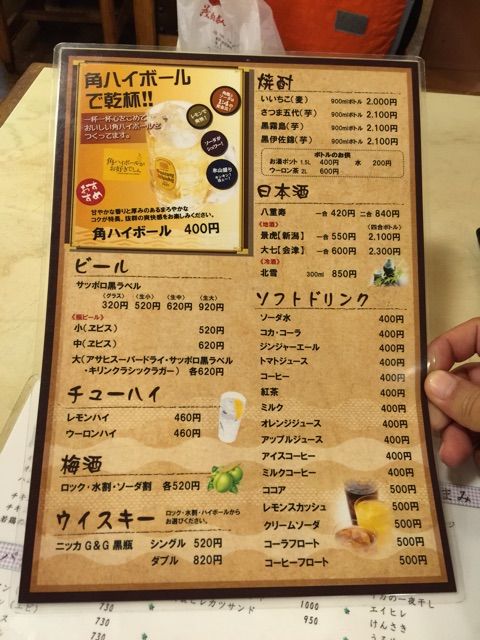 角ハイボール
で乾杯!!
一杯一杯心をこめて
おいしい角ハイボールを
つくってます。
角ハイボールが
お好きでしょ
おすすめ
レモンで
ソーダが
シュワー!
氷山盛り
甘やかな香りと厚みのあるまろやかな
コクが特長。抜群の爽快感をお楽しみください。
角ハイボール 400円
ビール
サッポロ黒ラベル
(グラス) (生小) (生中) (生大)
320円 520円 620円 920円
《瓶ビール》
小(ヱビス) 520円
中(ヱビス) 620円
大(アサヒスーパードライ・サッポロ黒ラベル
・キリンクラシックラガー) 各620円
チューハイ
レモンハイ 460円
ウーロンハイ 460円
梅酒
ロック・水割・ソーダ割 各520円
ウイスキー ロック・水割・ハイボールから
お選びください。
ニッカ G&G 黒瓶 シングル 520円
ダブル 820円
焼酎
いいちこ(麦) 900mlボトル 2.000円
さつま五代(芋) 900mlボトル 2.100円
黒霧島(芋) 900mlボトル 2.100円
黒伊佐錦(芋) 900mlボトル 2.100円
ボトルのお供
お湯ポット 1.5L 400円 水 200円
ウーロン茶 2L 600円
日本酒
八重寿 一合 420円 二合 840円
《地酒》 (四合ボトル)
景虎【新潟】 一合 550円 2.100円
大七【会津】 一合 600円 2.300円
《冷酒》
北雪 300ml 850円
ソフトドリンク
ソーダ水 400円
コカ・コーラ 400円
ジンジャーエール 400円
トマトジュース 400円
コーヒー 400円
紅茶 400円
ミルク 400円
オレンジジュース 400円
アップルジュース 400円
アイスコーヒー 400円
ミルクコーヒー 400円
ココア 500円
レモンスカッシュ 500円
クリームソーダ 500円
コーラフロート 500円
コーヒーフロート 500円
730
730
ヒレカツサンド 1000
950
つまみ
イカの一夜干し
エイヒレ
けんさき
うるめ